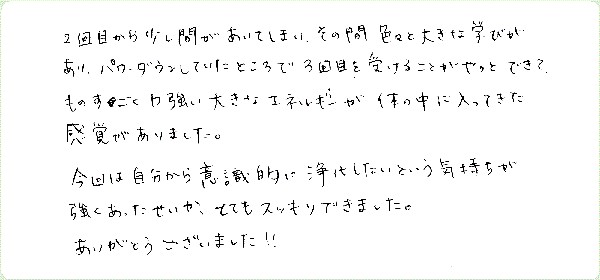 2回目から少し間があいてしまい、その間 色々と大きな学びが
あり、パワーダウンしていたところで3回目を受けることがやっとできて、
ものすごく力強い大きなエネルギーが体の中に入ってきた
感覚がありました。
今回は自分から意識的に浄化したいという気持ちが
強くあったせいか、とてもスッキリできました。
ありがとうございました!!